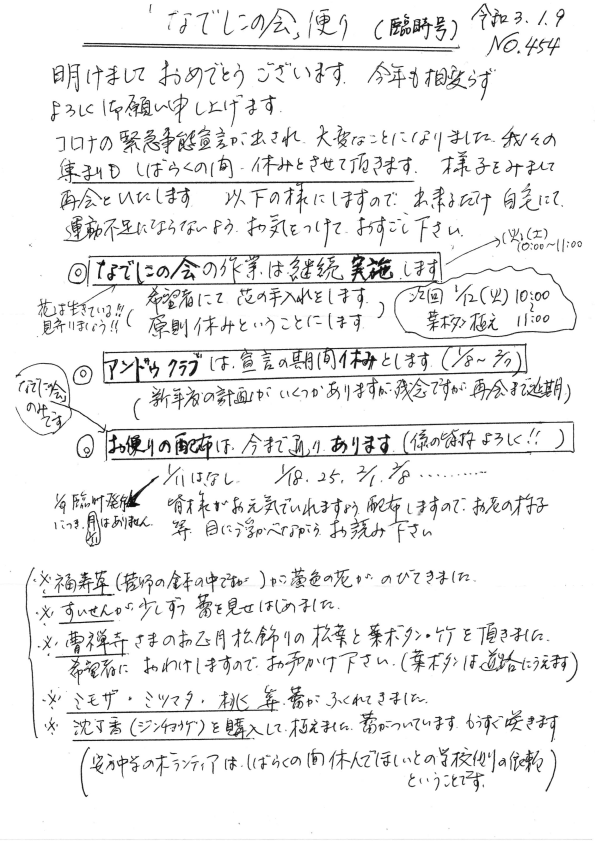 「なでしこの会」便り (臨時号) 令和3.1.9
NO.454
明けまして おめでとう ございます. 今年も相変らず
よろしくお願い申し上げます.
コロナの緊急事態宣言が出され、大変なことになりました. 我々の
集まりも しばらくの間 休みとさせて頂きます. 様子をみまして
再会といたします 以下の様にしますので 出来るだけ 自宅にて
運動不足にならないよう お気をつけて おすごし下さい.
(火)(土)
10:00~11:00
◎ なでしこの会の作業は継続実施します
花は生きている!!
見守りましょう!!
(希望者にて 花の手入れをします.
原則休みということにします)
次回 1/12(火) 10:00
葉ボタン植え 11:00
◎ アンドウクラブは、宣言の期間休みとします. (1/8~2/7)
(新年度の計画がいくつかありますが、残念ですが 再会まで延期)
「なでしこ会」
のみ
です
◎ お便りの配布は、今まで通り あります. (係の皆様 よろしく!!)
1/11はなし. 1/18. 25. 2/1. 2/8 ………
1/9 臨時発行
につき 月はありません.
皆様がお元気でいれますよう 配布しますので、お花の様子
等、目に浮かべながら お読み下さい
※ 福寿草 (の中ですが) が黄色の花が のびてきました.
※ すいせんが 少しずつ 蕾を見せはじめました.
※ 曹禅寺さまのお正月松飾りの松葉と葉ボタン・竹を頂きました.
希望者に おわけしますので お声かけ下さい. (葉ボタンは道路にうえます)
※ ミモザ・ミツマタ・桃 等 蕾が ふくれてきました.
※ 沈丁香 (ジンチョウゲ) を購入して、植えました. 蕾がついています. もうすぐ咲きます
(安方中学のボランティアは、しばらくの間休んでほしいとの学校側の依頼
ということです.)